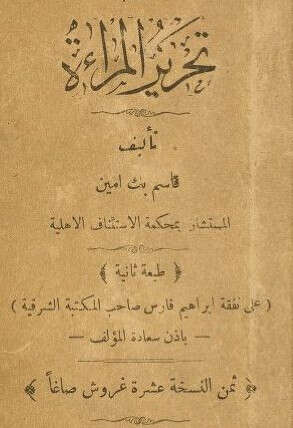 تحرير المراءة
تأليف
قاسم بك امين
المستشار بمحكمة الاستئناف الاهلية
﴿ طبعة ثانية ﴾
( على نفقة ابراهيم فارس صاحب المكتبة الشرقية )
— باذن سعادة المؤلف —
﴿ ثمن النسخة عشرة غروش صاغاً ﴾